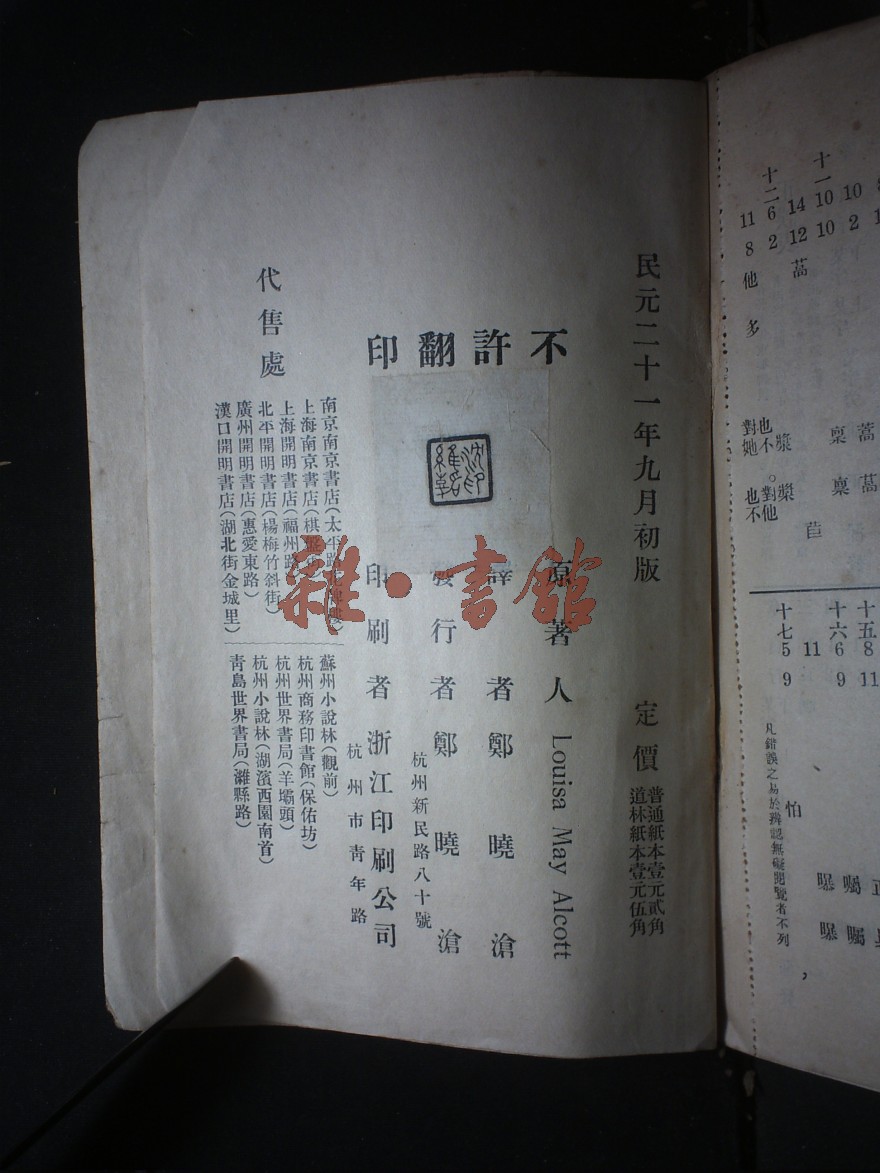 民元二十一年九月初版
定價
普通紙本壹元貳角
道林紙本壹元伍角
不許翻印
原著人 Louisa May Alcott
譯者 鄭曉滄
發行者 鄭曉滄
杭州新民路八十號
印刷者 浙江印刷公司
杭州市靑年路
代售處
南京南京書店(太平路
上海南京書店(棋盤街)
上海開明書店(福州路)
北平開明書店(楊梅竹斜街)
廣州開明書店(惠愛東路)
漢口開明書店(湖北街金城里)
蘇州小說林(觀前)
杭州商務印書館(保佑坊)
杭州世界書局(羊壩頭)
杭州小說林(湖濱西園南首)
靑島世界書局(濰縣路)
雜·書館
10 2
十一 10 10
14 12 萵
十二 6 2
11 8 他 多
蒿 萵
稟 稟
苣
漿 槳
也不。對他
對她 也不
十五 8 11
十六 6 9
11
十七 5 9
囑 囑
曝 曝
怕 ,
凡錯誤之易於辨認無礙閱覽者不列